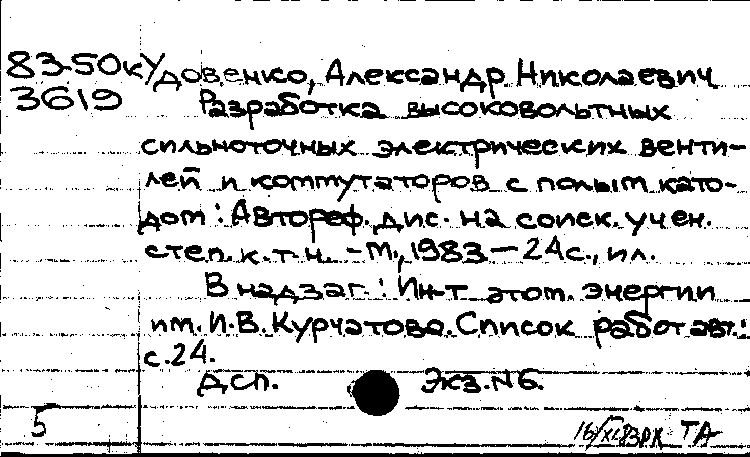 83-50к Удовенко, Александр Николаевич
3619 Разработка высоковольтных
сильноточных электрических венти-
лей и коммутаторов с полым като-
дом : Автореф. дис. на соиск. учен.
степ. к.т.н. - М., 1983 - 24с., ил.
В надзаг.: Ин-т атом. энергии
им. И.В. Курчатова. Список работ авт.:
с.24.
ДСП. Экз. N6.
5 ТА